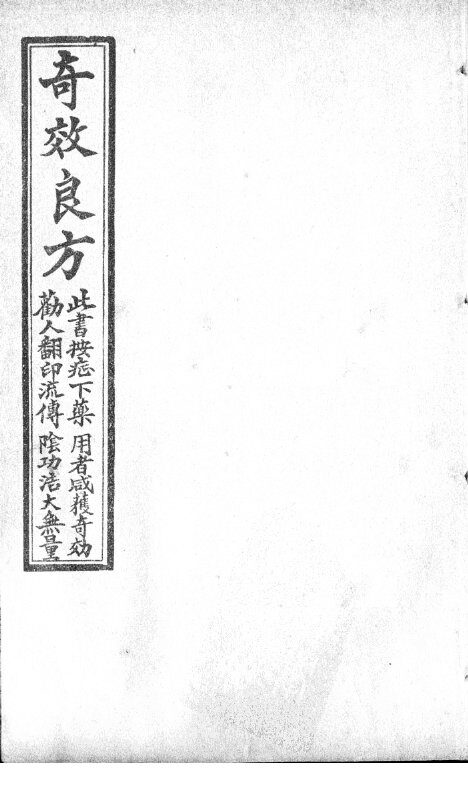 奇效良方
此書按症下藥 用者咸獲奇効
勸人翻印流傳 陰功浩大無量